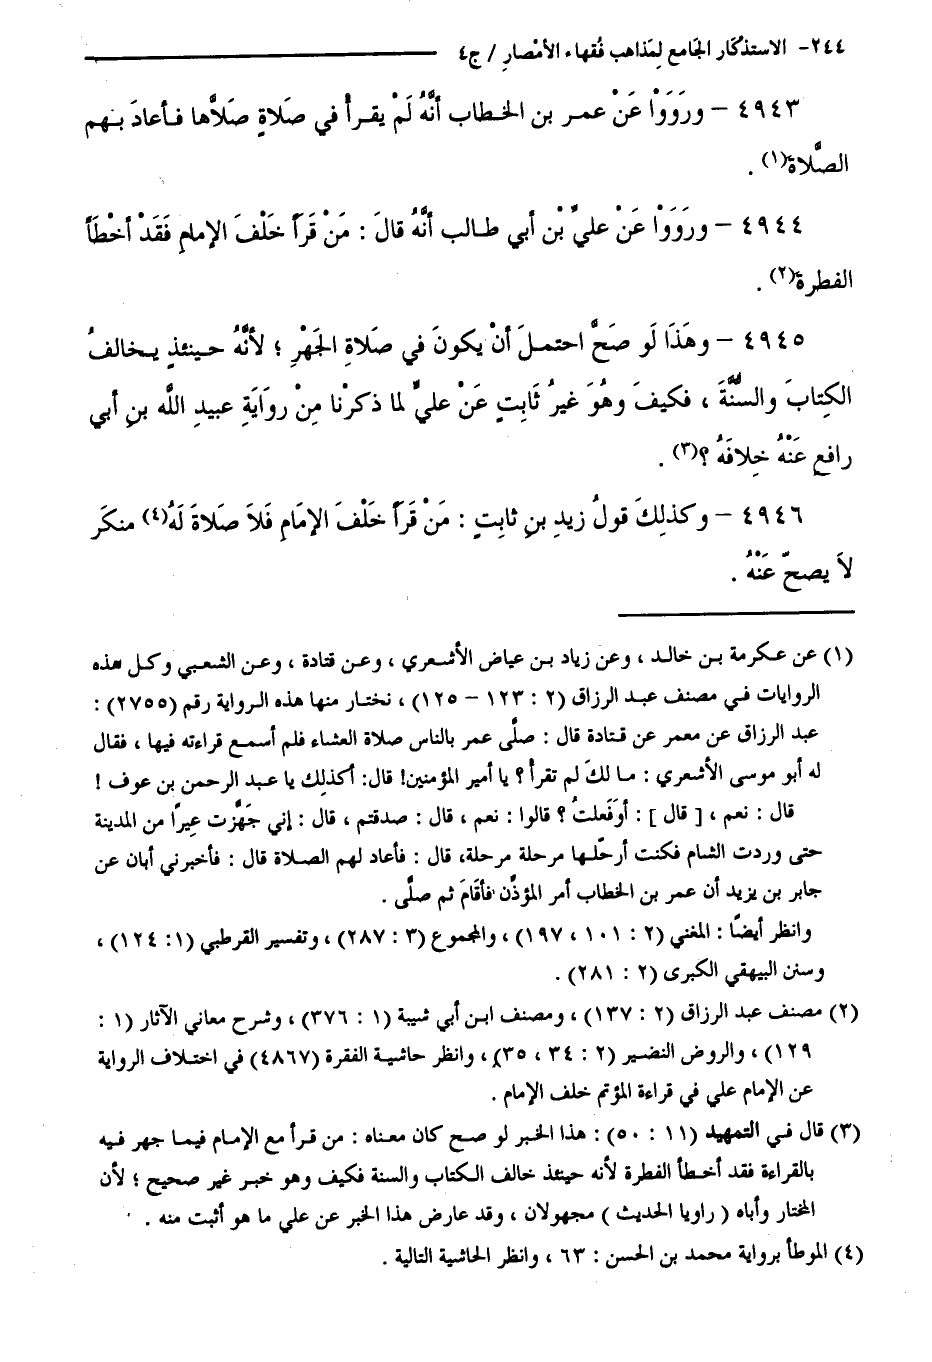 ٢٤٤- الاستذكَار الجَامع لمَذاهب فُقهاء الأمْصارِ / ج٤
٤٩٤٣ – ورَوَوْا عَنْ عمـر بن الخـطاب أنَّهُ لَمْ يقـرأْ في صَلاةٍ صَلاَّها فـأعادَ بـهم
الصَّلاة(١) .
٤٩٤٤ – ورَوَوْا عَنْ عليِّ بْن أبي طـالب أنَّهُ قالَ : مَنْ قَرَأ خَلْفَ الإمامِ فَقَدْ أخْطَأَ
الفطرة(٢) .
٤٩٤٥ – وهَذَا لَو صَحَّ احتمـلَ أنْ يكونَ في صَلاةِ الجَهْرِ ؛ لأنَّهُ حـينئذٍ يـخالفُ
الكِتابَ والسُّنَّةَ ، فكيفَ وهُوَ غيرُ ثَابتٍ عَنْ عليٍّ لما ذكرْنا مِنْ روَايَةِ عبيدِ اللَّه بنِ أبي
رافعٍ عَنْهُ خِلافَهُ ؟(٣) .
٤٩٤٦ – وكذلِكَ قولُ زيدِ بنِ ثابتٍ : مَنْ قَرَأ خَلْفَ الإمَامِ فَلاَ صَلاةَ لَهُ(٤) منكَر
لاَ يصحّ عَنْهُ .
(١) عن عـكرمة بـن خالـد ، وعن زياد بـن عياض الأشـعري ، وعـن قتادة ، وعـن الشـعبي وكـل هذه
الروايات فـي مصنف عبد الرزاق (٢ : ١٢٣ – ١٢٥) ، نختـار منها هذه الـرواية رقم (٢٧٥٥) :
عبد الرزاق عن معمر عن قـتادة قال : صلَّى عمر بالناس صلاة العشاء فلم أسمـع قراءته فيها ، فقال
له أبو موسى الأشعري : مـا لكَ لم تقرأ ؟ يا أمير المؤمنين! قال: أكذلِك يا عـبد الرحمن بن عوف !
قال : نعم ، [ قال ] : أوَفَعلتُ ؟ قالوا : نعم ، قال : صدقتم ، قال : إني جَهَّزت عِيرًا من المدينة
حتى وردت الشام فكنت أرحّلـها مرحلة مرحلة، قال : فأعاد لهم الصـلاة قال : فأخبرني أبان عن
جابر بن يزيد أن عمر بن الخطاب أمر المؤذّن فأقَامَ ثم صلَّى .
وانظر أيضًا : المغني (٢ : ١٠١ ، ١٩٧) ، والمجموع (٣ : ٢٨٧) ، وتفسير القرطبي (١ : ١٢٤) ،
وسنن البيهقي الكبرى (٢ : ٢٨١) .
(٢) مصنف عبد الرزاق (٢ : ١٣٧) ، ومصنف ابـن أبي شيبة (١ : ٣٧٦) ، وشرح معاني الآثار (١ :
١٢٩) ، والروض النضير (٢ : ٣٤ ، ٣٥) ، وانظر حاشيـة الفقرة (٤٨٦٧) في اختـلاف الرواية
عن الإمام علي في قراءة المؤتم خلف الإمام .
(٣) قال فـي التمهيد (١١ : ٥٠) : هذا الخبر لو صح كان معناه : من قرأ مع الإمـام فيمـا جهر فـيه
بالقراءة فقد أخـطأ الفطرة لأنه حينئذ خالف الـكتاب والسنة فكيف وهو خبـر غير صحيح ؛ لأن
المختار وأباه ( راويا الحديث ) مجهولان ، وقد عارض هذا الخبر عن علي ما هو أثبت منه .
(٤) الموطأ برواية محمد بن الحسن : ٦٣ ، وانظر الحاشية التالية .